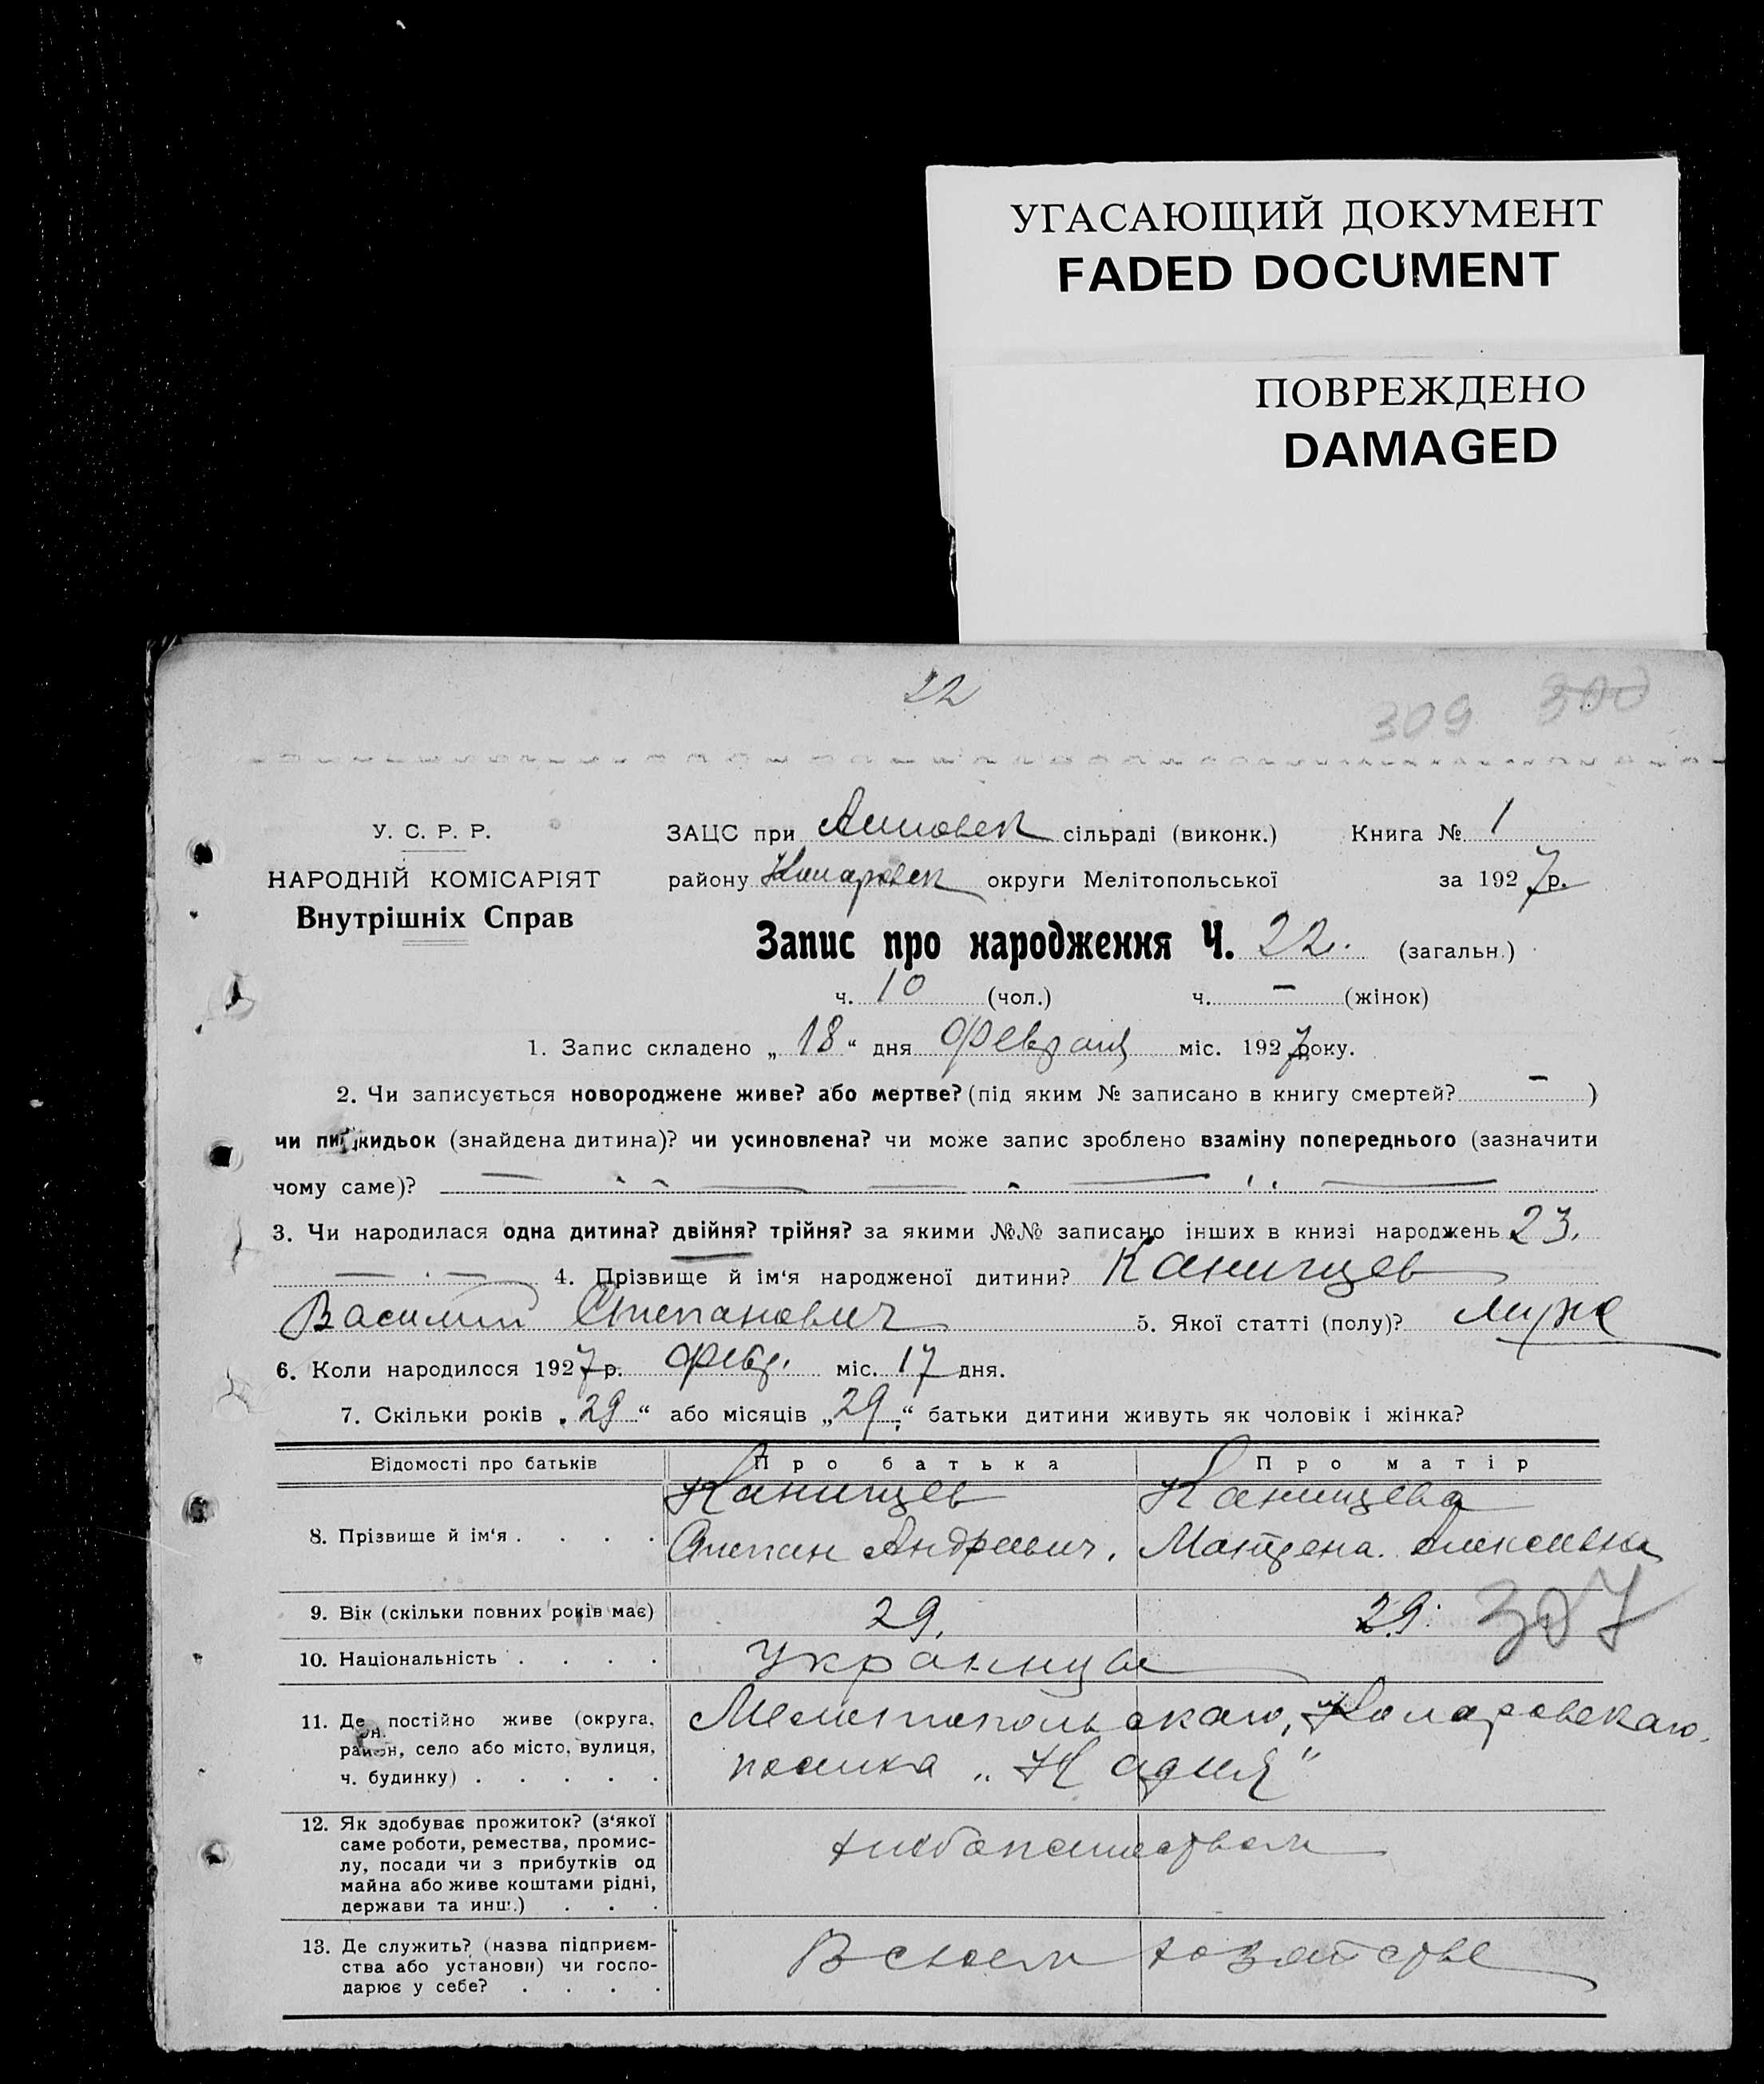 УГАСАЮЩИЙ ДОКУМЕНТ
FADED DOCUMENT
ПОВРЕЖДЕНО
DAMAGED
22
309 300
У. С. Р. Р.
НАРОДНІЙ КОМІСАРІЯТ
Внутрішніх Справ
ЗАЦС при сільраді (виконк.) Книга № 1
району Комаровск округи Мелітопольської за 1927 р.
Запис про народження Ч. 22. (загальн.)
ч. 10 (чол.) ч. – (жінок)
1. Запис складено „18“ дня Февраля міс. 1927 року.
2. Чи записується новороджене живе? або мертве? (під яким № записано в книгу смертей? – )
чи підкидьок (знайдена дитина)? чи усиновлена? чи може запис зроблено взаміну попереднього (зазначити
чому саме)?
3. Чи народилася одна дитина? двійня? трійня? за якими №№ записано інших в книзі народжень 23.
4. Прізвище й ім‘я народженої дитини? Канищев
Василий Степанович 5. Якої статті (полу)? муж
6. Коли народилося 1927 р. февр. міс. 17 дня.
7. Скільки років „29“ або місяців „29“ батьки дитини живуть як чоловік і жінка?
Відомості про батьків Про батька Про матір
8. Прізвище й ім‘я . . . . Канищев Канищева
Степан Андреевич. Матрена. Алексеевна
9. Вік (скільки повних років має) 29. 29. 307
10. Національність . . . . Украинцы
11. Де постійно живе (округа, Мелитопольскаго, Комаровскаго,
район, село або місто, вулиця,
ч. будинку) . . . . . поселка „Надия“
12. Як здобуває прожиток? (з‘якої
саме роботи, ремества, промис-
лу, посади чи з прибутків од хлебопашеством
майна або живе коштами рідні,
держави та инш.) . . .
13. Де служить? (назва підприєм-
ства або установи) чи госпо- В своем хозяйстве
дарює у себе? . . . .